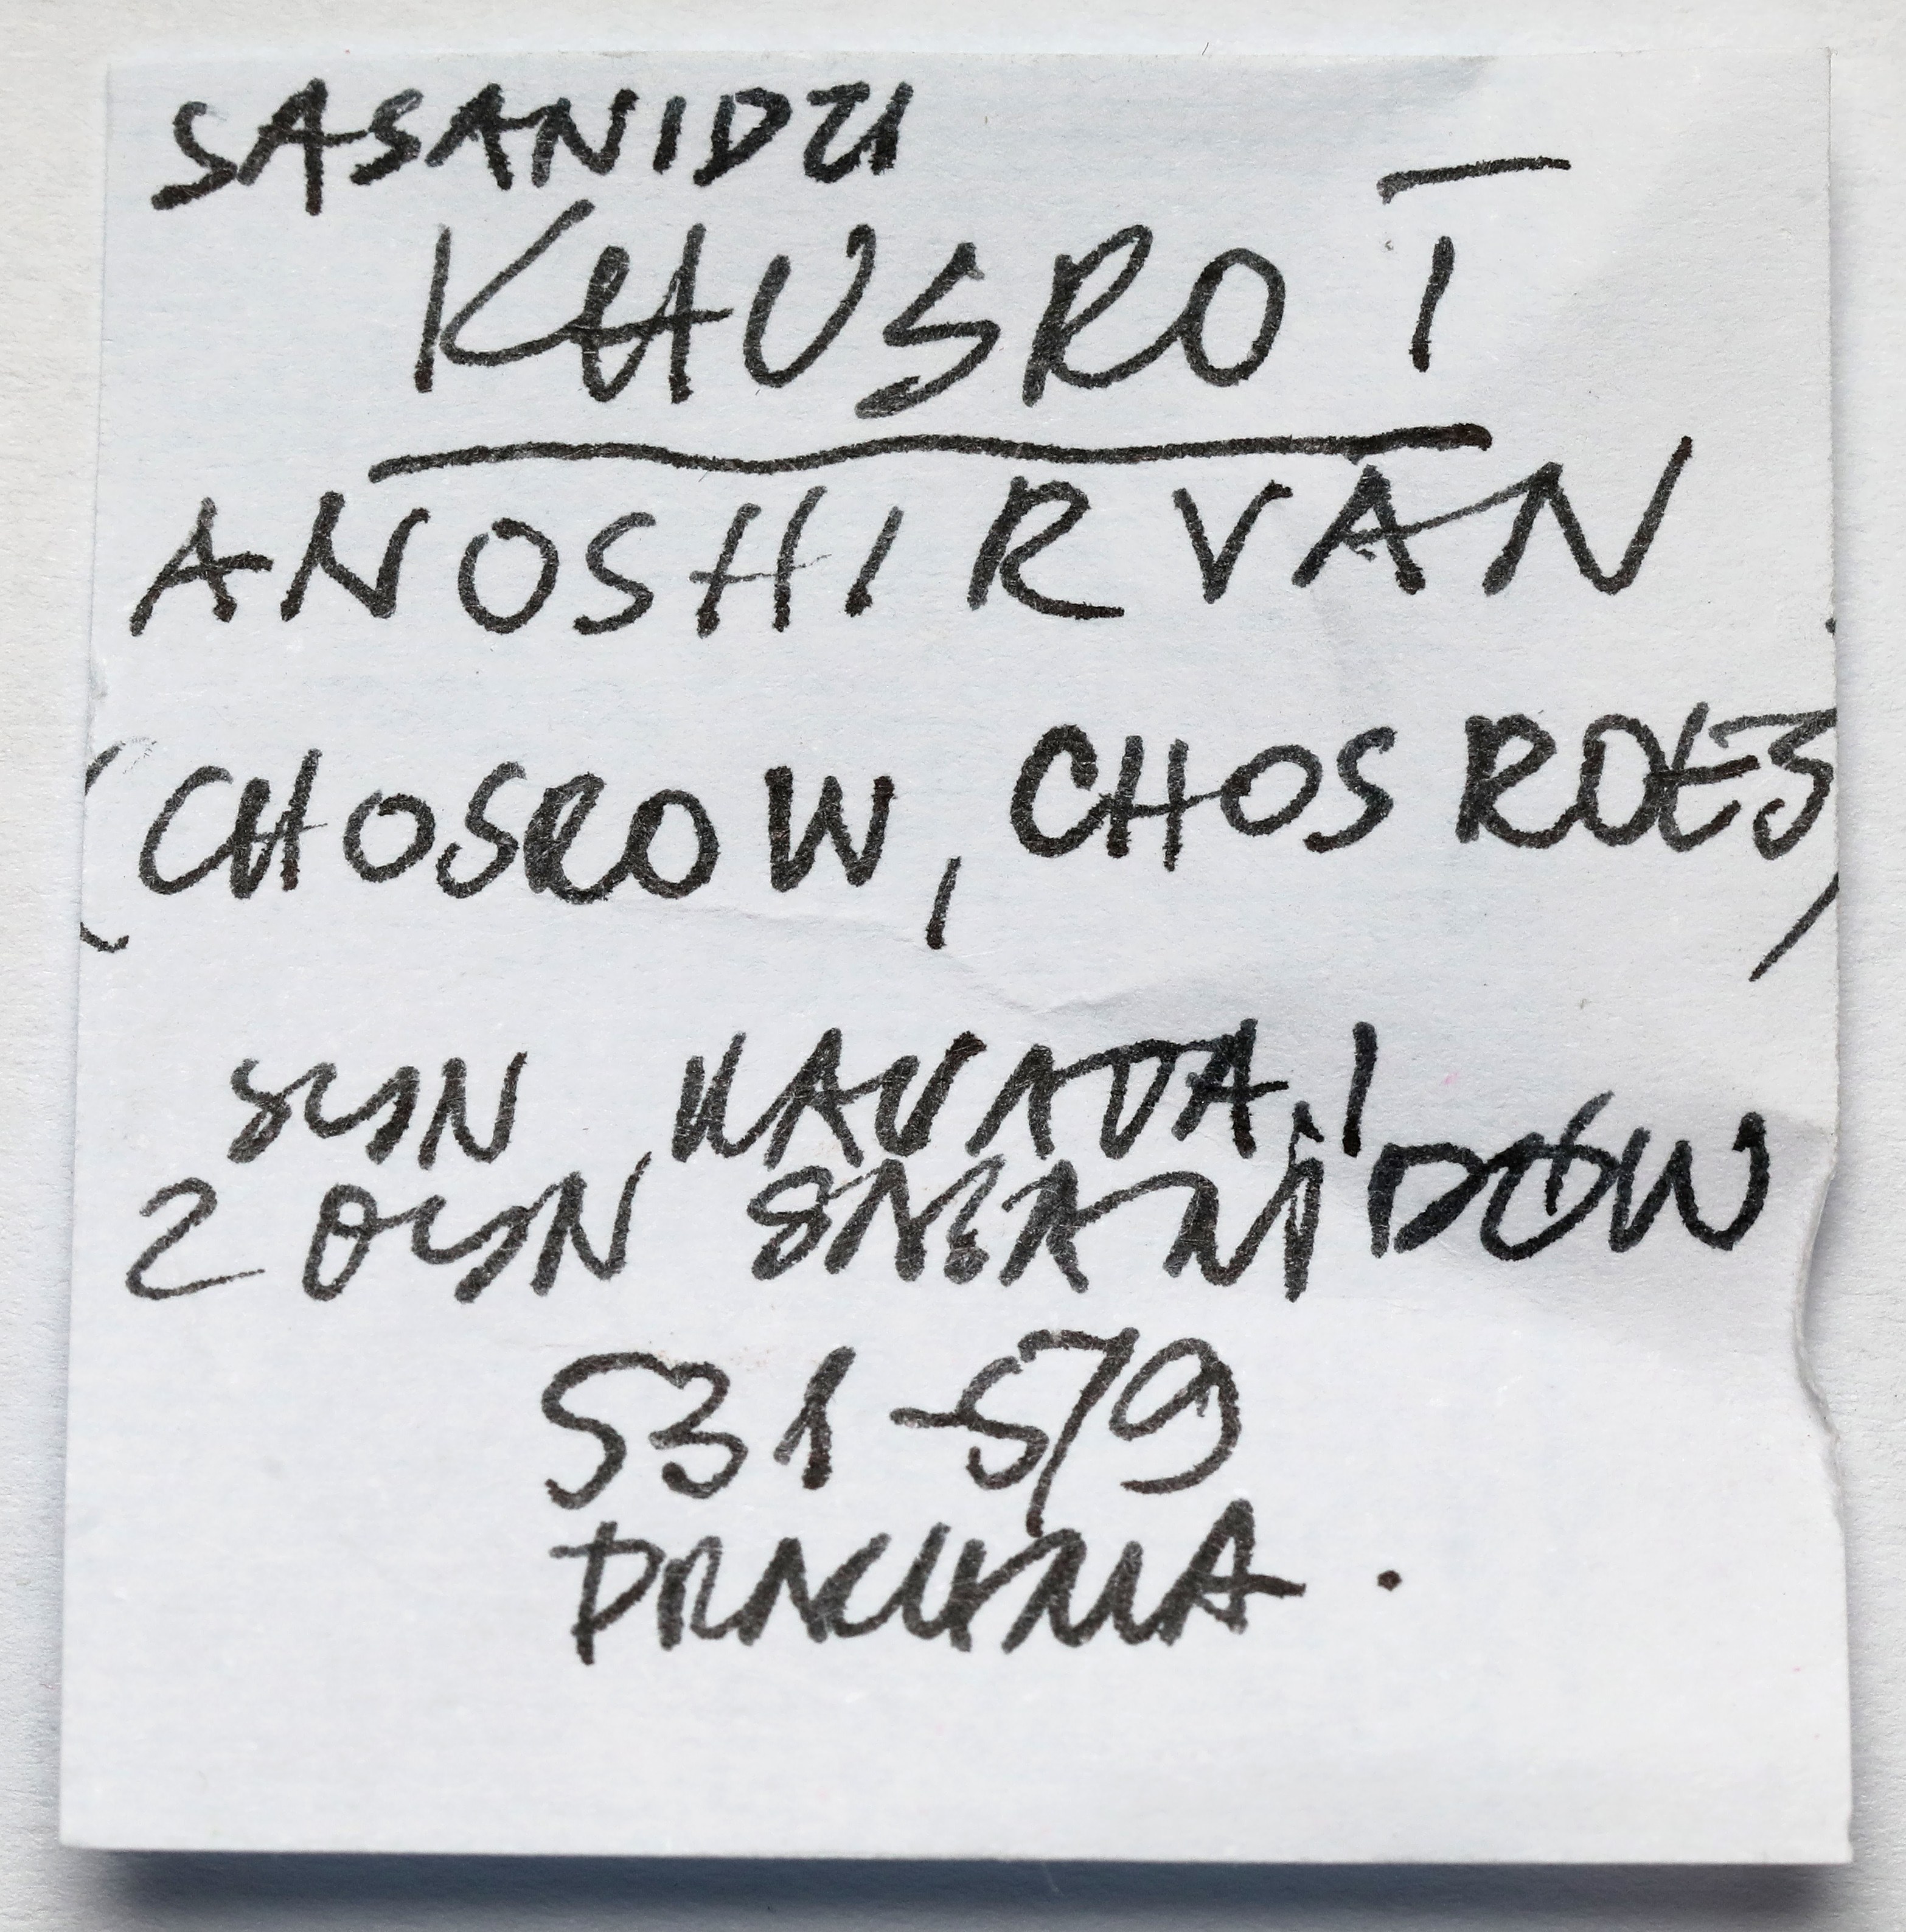 SASANIDZI
KHUSRO I
ANOSHIRVAN
(CHOSROW, CHOSROES)
SYN KAVADA I
Z DYN SASANIDÓW
531-579
DRACHMA.